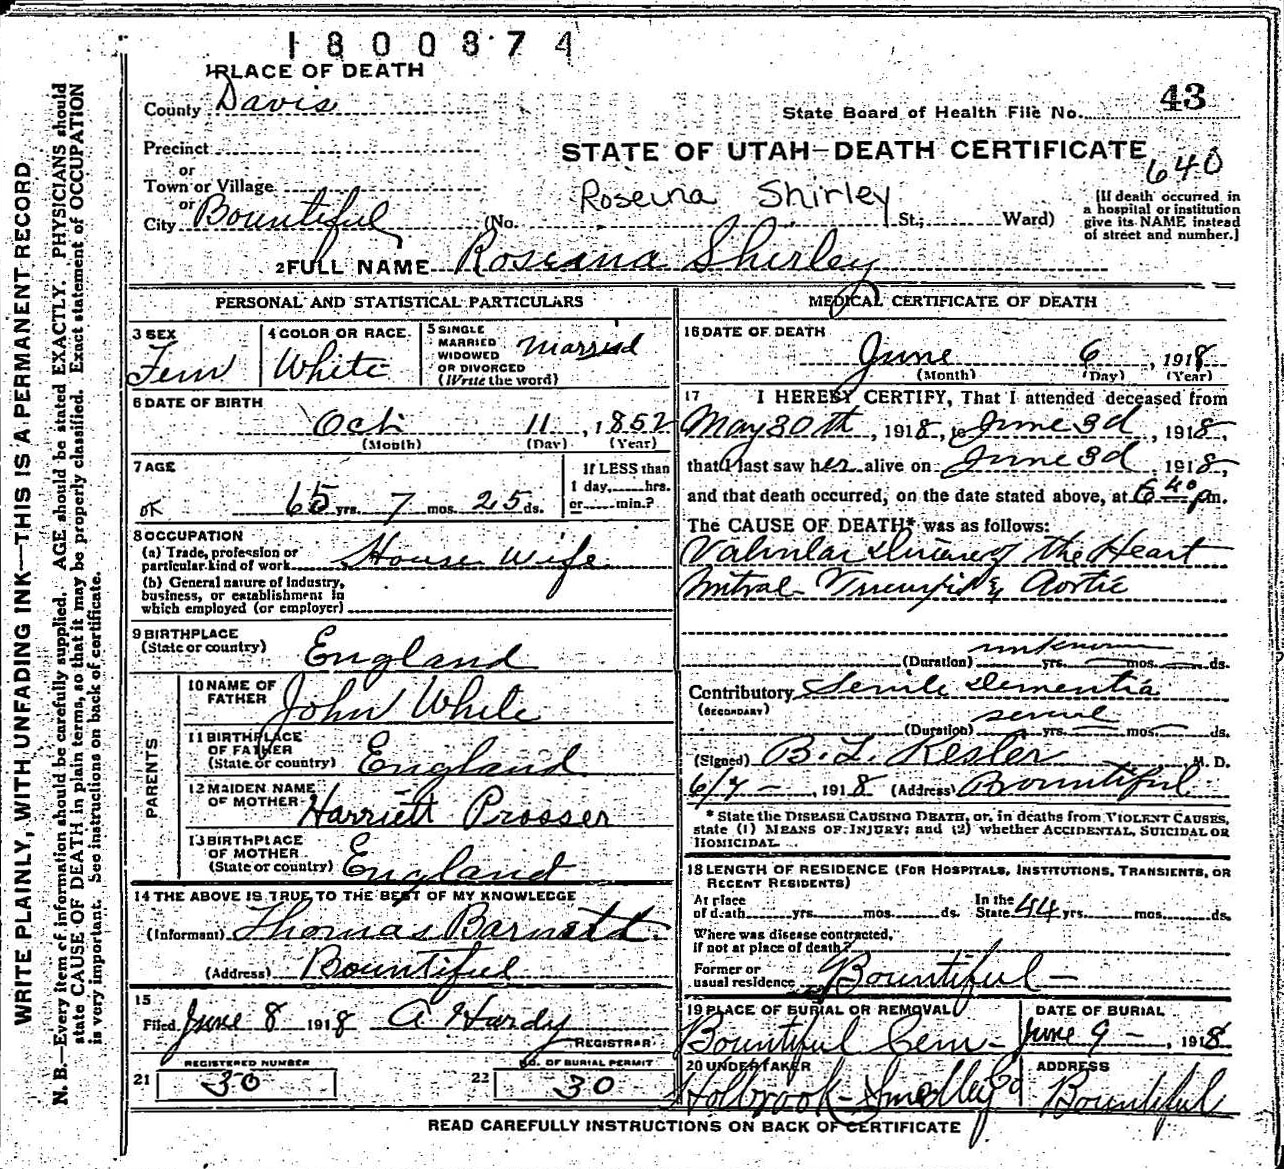 1800874
1 PLACE OF DEATH
County Davis
State Board of Health File No. 43
Precinct
STATE OF UTAH—DEATH CERTIFICATE
640
or
Town or Village
Roseina Shirley
or
City Bountiful (No. St.; Ward)
[If death occurred in
a hospital or institution
give its NAME instead
of street and number.]
2 FULL NAME Roseina Shirley
PERSONAL AND STATISTICAL PARTICULARS
3 SEX
Fem
4 COLOR OR RACE
White
5 SINGLE
MARRIED
WIDOWED
OR DIVORCED
(Write the word)
Married
6 DATE OF BIRTH
Oct 11, 1852
(Month) (Day) (Year)
7 AGE
If LESS than
1 day, hrs.
or min.?
OK 65 yrs. 7 mos. 25 ds.
8 OCCUPATION
(a) Trade, profession or
particular kind of work House Wife
(b) General nature of industry,
business, or establishment in
which employed (or employer)
9 BIRTHPLACE
(State or country) England
PARENTS
10 NAME OF
FATHER John White
11 BIRTHPLACE
OF FATHER
(State or country) England
12 MAIDEN NAME
OF MOTHER Harriett Prosser
13 BIRTHPLACE
OF MOTHER
(State or country) England
14 THE ABOVE IS TRUE TO THE BEST OF MY KNOWLEDGE
(Informant) Thomas Barnett
(Address) Bountiful
15
Filed June 8 1918 A Hardy
REGISTRAR
REGISTERED NUMBER
21 30
NO. OF BURIAL PERMIT
22 30
MEDICAL CERTIFICATE OF DEATH
16 DATE OF DEATH
June 6, 1918
(Month) (Day) (Year)
17 I HEREBY CERTIFY, That I attended deceased from
May 30th, 1918, to June 3d, 1918,
that I last saw her alive on June 3d, 1918,
and that death occurred, on the date stated above, at 6 40 pm.
The CAUSE OF DEATH* was as follows:
Valvular Disease of the Heart
Mitral & Aortic
(Duration) unknown yrs. mos. ds.
Contributory Senile Dementia
(SECONDARY)
(Duration) yrs. mos. ds.
(Signed) B. L. Kesler M. D.
6/7 —, 1918 (Address) Bountiful
* State the DISEASE CAUSING DEATH, or, in deaths from VIOLENT CAUSES,
state (1) MEANS OF INJURY; and (2) whether ACCIDENTAL, SUICIDAL OR
HOMICIDAL.
18 LENGTH OF RESIDENCE (FOR HOSPITALS, INSTITUTIONS, TRANSIENTS, OR
RECENT RESIDENTS)
At place
of death yrs. mos. ds.
In the
State 44 yrs. mos. ds.
Where was disease contracted,
if not at place of death?
Former or
usual residence Bountiful —
19 PLACE OF BURIAL OR REMOVAL
Bountiful Cem —
DATE OF BURIAL
June 9 —, 1918
20 UNDERTAKER
Holbrook-Smedley Co
ADDRESS
Bountiful
READ CAREFULLY INSTRUCTIONS ON BACK OF CERTIFICATE
WRITE PLAINLY, WITH UNFADING INK—THIS IS A PERMANENT RECORD
N. B.—Every item of information should be carefully supplied. AGE should be stated EXACTLY. PHYSICIANS should
state CAUSE OF DEATH in plain terms, so that it may be properly classified. Exact statement of OCCUPATION
is very important. See instructions on back of certificate.